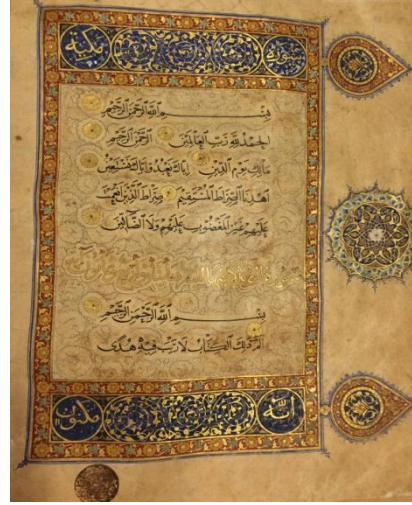 سورة مكية
بِسْمِ اللَّهِ الرَّحْمَٰنِ الرَّحِيمِ
الحَمْدُ لِلَّهِ رَبِّ العَالَمِينَ الرَّحْمَٰنِ الرَّحِيمِ
مَالِكِ يَوْمِ الدِّينِ إِيَّاكَ نَعْبُدُ وَإِيَّاكَ نَسْتَعِينُ
اهْدِنَا الصِّرَاطَ المُسْتَقِيمَ صِرَاطَ الَّذِينَ أَنْعَمْتَ
عَلَيْهِمْ غَيْرِ المَغْضُوبِ عَلَيْهِمْ وَلَا الضَّالِّينَ
بِسْمِ اللَّهِ الرَّحْمَٰنِ الرَّحِيمِ
الم ذَلِكَ الكِتَابُ لَا رَيْبَ فِيهِ هُدًى
إنه مكنون